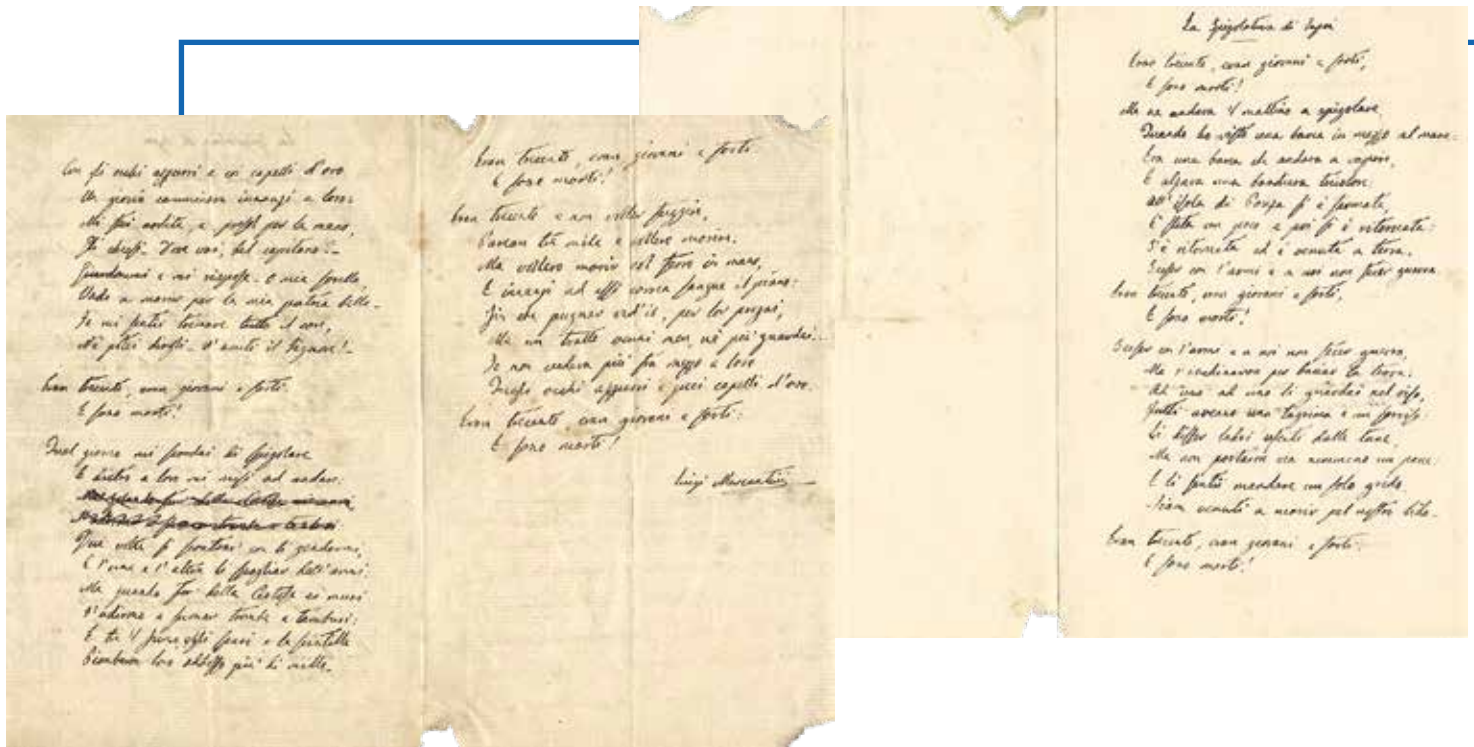 La Spigolatrice di Sapri
Eran trecento, eran giovani e forti,
E sono morti!
Me ne andava il mattino a spigolare
Quando ho visto una barca in mezzo al mare:
Era una barca che andava a vapore,
E alzava una bandiera tricolore.
All'isola di Ponza si è fermata,
È stata un poco e poi si è ritornata:
S'è ritornata ed è venuta a terra.
Sceser con l'armi e a noi non fecer guerra.
Eran trecento, eran giovani e forti,
E sono morti!
Sceser con l'armi e a noi non fecer guerra,
Ma s'inchinaron per baciar la terra.
Ad uno ad uno li guardai nel viso,
Tutti aveano una lagrima e un sorriso.
Li disser ladri usciti dalle tane,
Ma non portaron via nemmeno un pane.
E li sentii mandare un solo grido.
Siam venuti a morir pel nostro lido.
Eran trecento, eran giovani e forti:
E sono morti!
Con gli occhi azzurri e coi capelli d'oro
Un giovin camminava innanzi a loro:
Mi feci ardita, e, presol per la mano,
Gli chiesi. Dove vai, bel capitano? -
Guardommi e mi rispose. O mia sorella,
Vado a morir per la mia patria bella. -
Io mi sentii tremare tutto il core,
Nè potei dirgli. V'aiuti il Signore! -
Eran trecento, eran giovani e forti.
E sono morti!
Quel giorno mi scordai di spigolare
E dietro a lor mi misi ad andare.
Due volte si scontrar con li gendarmi,
E l'una e l'altra li spogliar dell'armi:
Ma quando fur della Certosa ai muri
S'udirono a suonar trombe e tamburi:
E tra il fumo e gli spari e le scintille
Piombaron loro addosso più di mille.
Eran trecento, eran giovani e forti.
E sono morti!
Eran trecento e non voller fuggire,
Parean tre mila e vollero morire.
Ma vollero morir col ferro in mano,
E innanzi ad essi correa sangue il piano:
Fin che pugnar vid'io, per lor pregai,
Ma un tratto venni men, nè più guardai...
Io non vedeva più fra mezzo a loro
Quegli occhi azzurri e quei capelli d'oro.
Eran trecento, eran giovani e forti:
E sono morti!
Luigi Mercantini